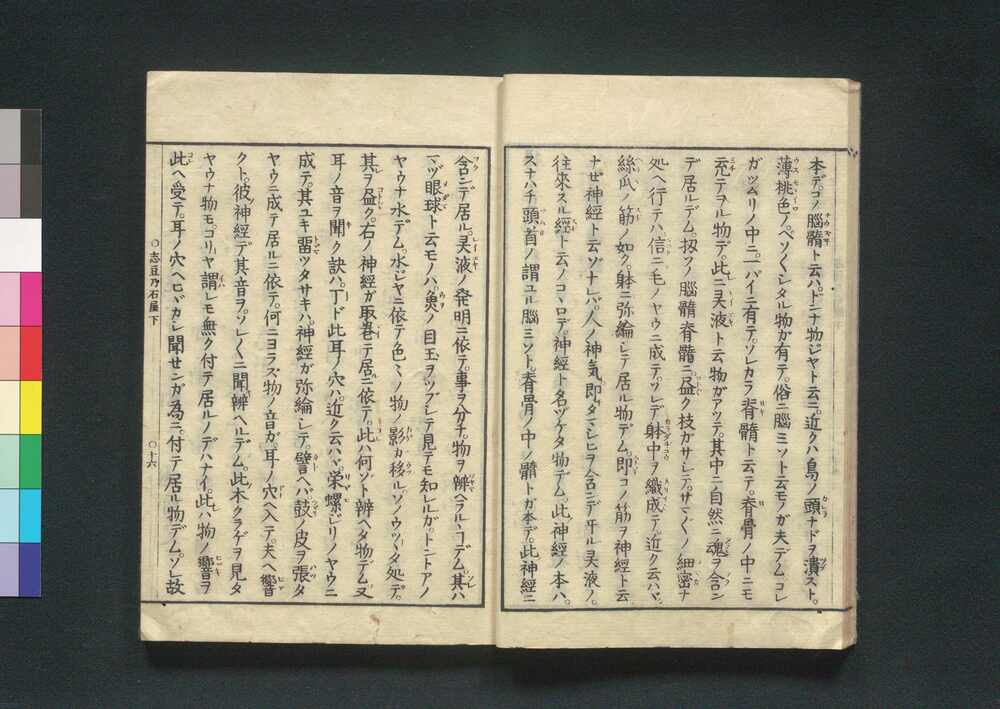 本デ。コノ腦髓ト云ハ。ドンナ物ジヤト云ニ。近クハ鳥ノ頭ナドヲ潰スト。
薄桃色ノ。ベソ〱シタル物ガ有テ。俗ニ腦ミソト云モノガ夫デム。コレ
ガツムリノ中ニ。一パイニ有テ。ソレカラ脊髓ト云テ。脊骨ノ中ニモ
充テヲル物デ。此ニ灵液ト云物ガアツテ。其中ニ自然ニ魂ヲ含ン
デ居ルデム。扨コノ腦髓脊髓ニ。盡ク枝ガサシテ。サマ〲ノ細密ナ
処ヘ行テハ。信ニ毛ノヤウニ成テ。ソレデ躰中ヲ織成テ。近ク云ハヾ。
絲瓜ノ筋ノ如ク。躰ニ弥綸シテ居ル物デム。即コノ筋ヲ神經ト云。
ナゼ神經ト云ゾナレバ。人ノ神気。即ダマシヒヲ含ンデヰル灵液ノ。
往來スル經ト云ノコヽロデ。神經ト名ヅケタ物デム。此神經ノ本ハ。
スナハチ頭首ノ謂ユル腦ミソト。脊骨ノ中ノ髓トガ本デ。此神經ニ
含ンデ居ル。灵液ノ発明ニ依テ。事ヲ分チ。物ヲ辨ヘラルヽヿデム。其ハ
マヅ眼球ト云モノハ。魚ノ目玉ヲツブシテ見テモ知レルガ。トントアノ
ヤウナ水デム。水ジヤニ依テ。色々ノ物ノ影ガ移ル。ソノウツヽタ処デ。
其ヲ盡ク。右ノ神經ガ取巻テ居ニ依テ。此ハ何ゾト辨ヘタ物デム。又
耳ノ音ヲ聞ク訣ハ。丁ド此耳ノ穴ハ。近ク云ハヾ。栄螺ジリノヤウニ
成テ。其ユキ畱ツタサキハ。神經ガ弥綸シテ。譬ヘバ鼓ノ皮ヲ張タ
ヤウニ成テ居ルニ依テ。何ニヨラズ物ノ音ガ。耳ノ穴ヘ入テ。夫ヘ響
クト。彼神經デ其音ヲ。ソレ〲ニ聞辨ヘルデム。此木クラゲヲ見タ
ヤウナ物モ。コリヤ謂レモ無ク付テ居ルノデハナイ。此ハ物ノ響ヲ
此ヘ受テ。耳ノ穴ヘコロガシ聞センガ為ニ。付テ居ル物デム。ソレ故
○志豆乃石屋下
○十六